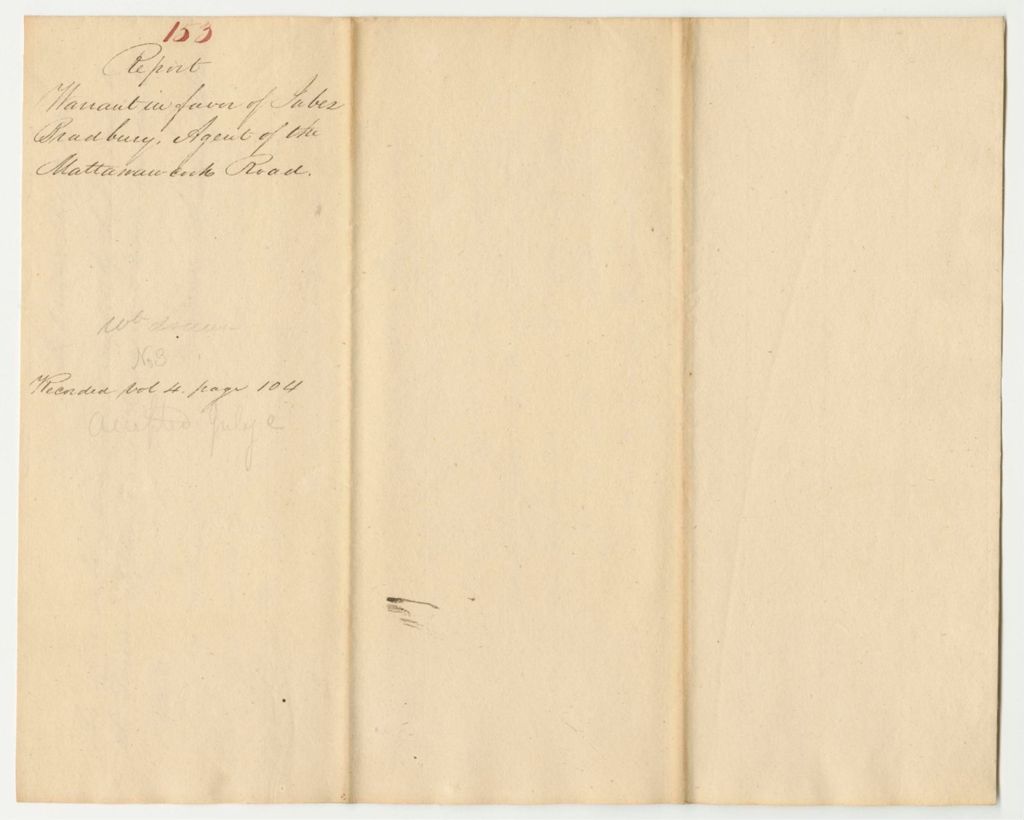 153
Report
Warrant in favor of Jabez
Bradbury, Agent of the
Mattanawcook Road.
No 3
Recorded Vol 4. page 104
Accepted July